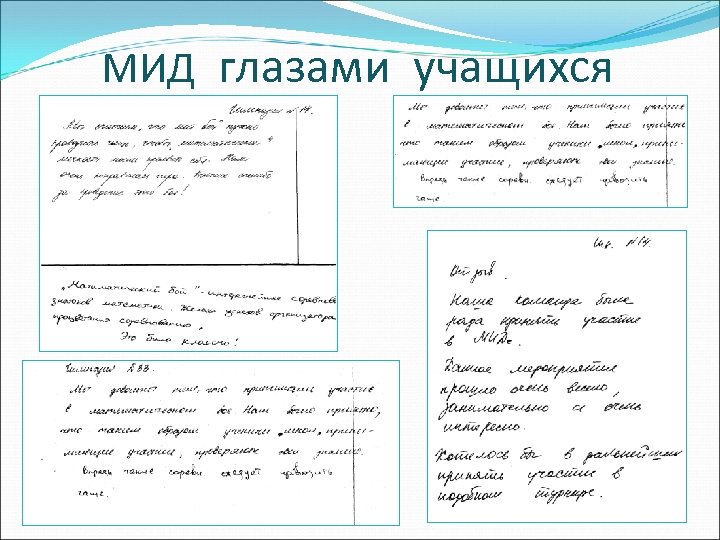 МИД глазами учащихся
Гимназия №14.
Мы считаем, что мат бой нужно
проводить чаще, чтобы математики
могли показать себя. Нам
очень понравилась игра. Большое спасибо
за проведение этого боя!
„Математический бой" - интереснейшее соревнова
знатоков математики. Желаем успехов организаторам
процветания соревнованию,
Это было классно!
Мы довольны тем, что принимали участие
в математическом бое. Нам было приятно,
что таким образом ученики школ, прини-
мающие участие, проверяют свои знания.
Впредь такие соревн. следует проводить
чаще.
Гимназия №33.
Мы довольны тем, что принимали участие
в математическом бое. Нам было приятно,
что таким образом ученики школ, прини-
мающие участие, проверяют свои знания.
Впредь такие соревн. следует проводить
чаще.
№14.
Отзыв.
Наша команда была
рада принять участие
в МИДе.
Данное мероприятие
прошло очень весело,
занимательно и очень
интересно.
Хотелось бы в дальнейшем
принять участие в
подобном турнире.